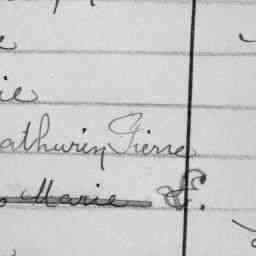 ie
athurin Pierre
Marie E.